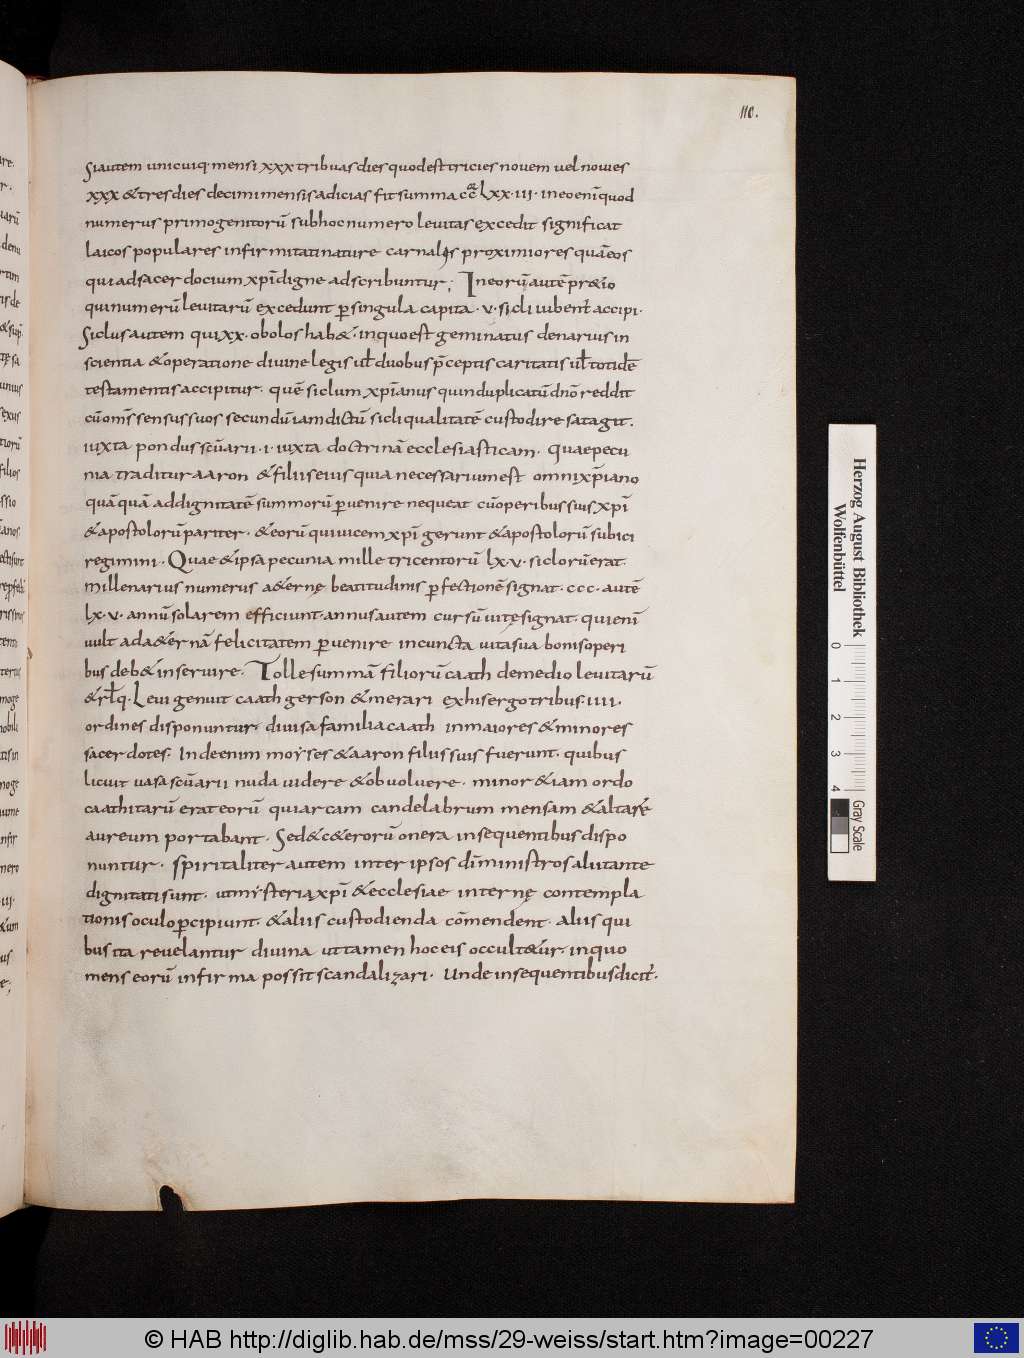 110.
Siautem unicuiq mensi xxx tribuas dies quodest tricies novem vel novies
xxx & tres dies decimi mensis adicias fit summa cc lxx·iii· ineo enī quod
numerus primogenitorū subhoc numero levitas excedit significat
laicos populares infirmitati nature carnalis proximiores quā eos
qui ad sacerdocium xp̄i digne adscribuntur; In eorū autē p̄r&io
qui numerū levitarū excedunt p̱ singula capita ·v· sicli iubent̄ accipi·
Siclus autem qui xx· obolos hab& · in quo est geminatus denarius in
scientia & operatione divine legis ul̄ duobus p̄ceptis caritatis ul̄ totidē
testamentis accipitur· quē siclum xp̄ianus quin duplicatū dn̄o reddit
cū om̄s sensus suos secundū iam dictū sicli qualitatē custodire satagit.
iuxta pondus scūarii ·i· iuxta doctrinā ecclesiasticam· Quae pecu
nia traditur aaron & filiis eius quia necessarium est omni xp̄iano
quā quā ad dignitatē summorū p̱venire nequeat cū operibus suis xp̄i
& apostolorū pariter· & eorū qui vicem xp̄i gerunt & apostolorū subici
regimini· Quae & ipsa pecunia mille tricentorū lx·v· siclorū erat·
millenarius numerus ad &ernę beatitudinis p̱fectionē signat· ccc· autē
lx·v· annū solarem efficiunt· annus autem cursū vitę signat· qui enī
vult ad a&ernā felicitatem p̱venire in cuncta vita sua bonis operi
bus deb& inservire· Tolle summā filiorū caath de medio levitarū
& rl̄q· Levi genuit caath gerson & merari ex his ergo tribus· iiii·
ordines disponuntur divisa familia caath in maiores & minores
sacerdotes· Inde enim moyses & aaron filiis suis fuerunt· quibus
licuit vasa scūarii nuda videre & obvolvere· minor &iam ordo
caathitarū erat eorū qui arcam candelabrum mensam & altare
aureum portabant· Sed & c&erorū onera in sequentibus dispo
nuntur· spiritaliter autem inter ipsos dī ministros alii tante
dignitati sunt· ut mysteria xp̄i & ecclesiae internę contempla
tionis oculo p̱cipiunt· & aliis custodienda cōmendent· Aliis qui
bus ita revelantur divina ut tamen hoc eis occult&ur· in quo
mens eorū infirma possit scandalizari· Unde in sequentibus dicit̄·
Herzog August Bibliothek
Wolfenbüttel
0 1 2 3 4
Gray Scale
© HAB http://diglib.hab.de/mss/29-weiss/start.htm?image=00227